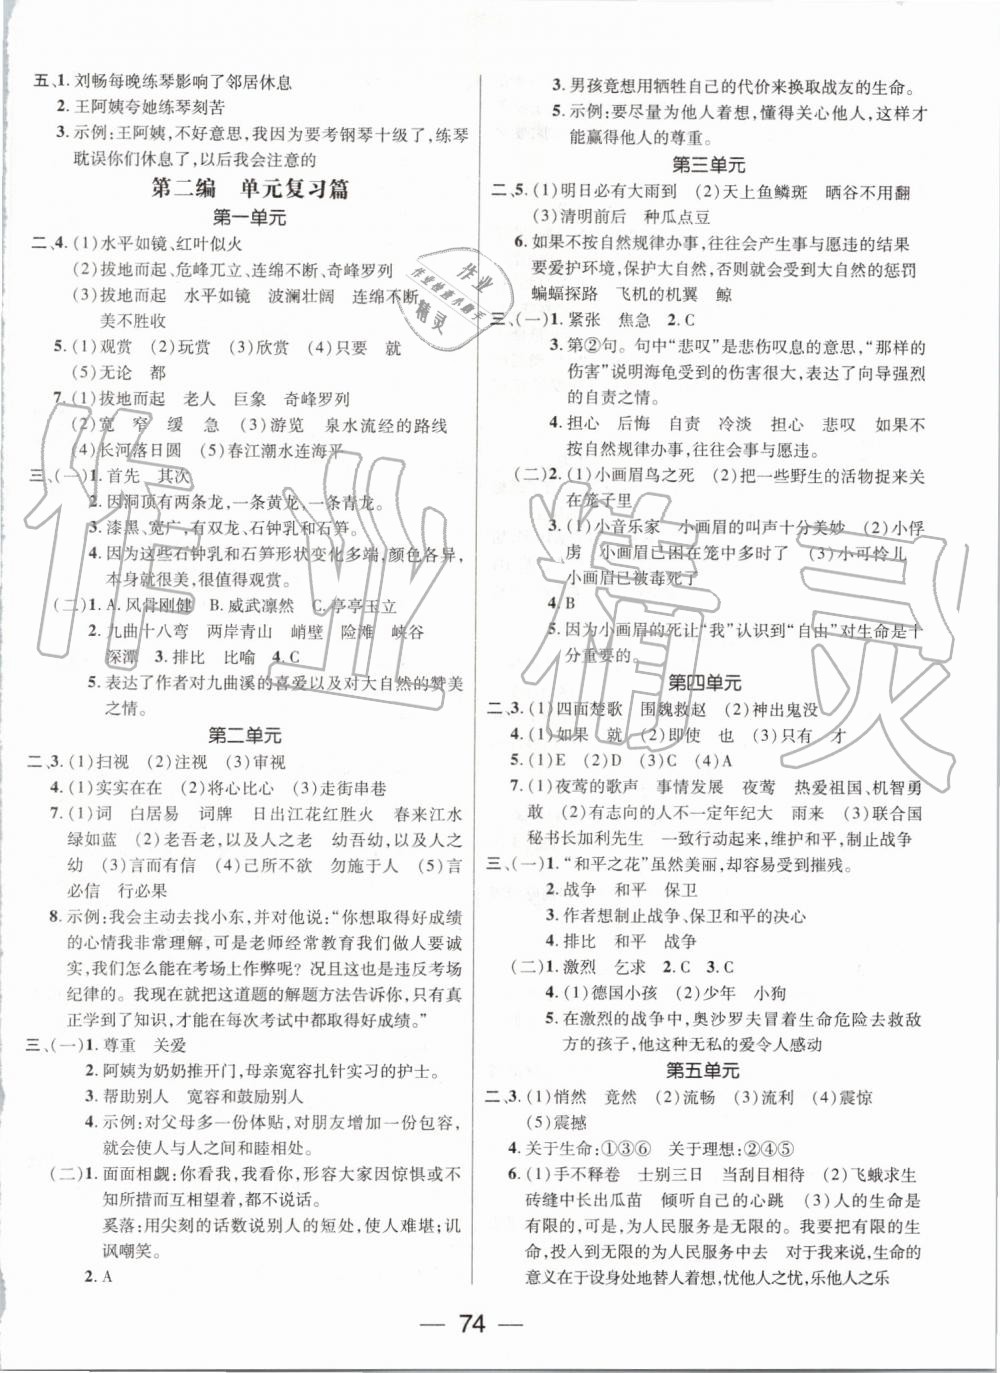 五、1. 刘畅每晚练琴影响了邻居休息
2. 王阿姨夸她练琴刻苦
3. 示例:王阿姨,不好意思,我因为要考钢琴十级了,练琴
耽误你们休息了,以后我会注意的
第二编 单元复习篇
第一单元
二、4. (1)水平如镜、红叶似火
(2)拔地而起、危峰兀立、连绵不断、奇峰罗列
(3)拔地而起 水平如镜 波澜壮阔 连绵不断
美不胜收
5. (1)观赏 (2)玩赏 (3)欣赏 (4)只要 就
(5)无论 都
7. (1)拔地而起 老人 巨象 奇峰罗列
(2)宽 窄 缓 急 (3)游览 泉水流经的路线
(4)长河落日圆 (5)春江潮水连海平
三、(一)1. 首先 其次
2. 因洞顶有两条龙,一条黄龙、一条青龙。
3. 漆黑、宽广,有双龙、石钟乳和石笋。
4. 因为这些石钟乳和石笋形状变化多端,颜色各异,
本身就很美,很值得观赏。
(二)1. A. 风骨刚健 B. 威武凛然 C. 亭亭玉立
2. 九曲十八弯 两岸青山 峭壁 险滩 峡谷
深潭 3. 排比 比喻 4. C
5. 表达了作者对九曲溪的喜爱以及对大自然的赞美
之情。
第二单元
二、3. (1)扫视 (2)注视 (3)审视
4. (1)实实在在 (2)将心比心 (3)走街串巷
7. (1)词 白居易 词牌 日出江花红胜火 春来江水
绿如蓝 (2)老吾老,以及人之老 幼吾幼,以及人之
幼 (3)言而有信 (4)己所不欲 勿施于人 (5)言
必信 行必果
8. 示例:我会主动去找小东,并对他说:“你想取得好成绩
的心情我非常理解,可是老师经常教育我们做人要诚
实,我们怎么能在考场上作弊呢?况且这也是违反考场
纪律的。我现在就把这道题的解题方法告诉你,只有真
正学到了知识,才能在每次考试中都取得好成绩。”
三、(一)1. 尊重 关爱
2. 阿姨为奶奶推开门,母亲宽容扎针实习的护士。
3. 帮助别人 宽容和鼓励别人
4. 示例:对父母多一份体贴,对朋友多一份包容,
就会使人与人之间和睦相处。
(二)1. 面面相觑:你看我,我看你,形容大家因惊惧或不
知所措而互相望着,都不说话。
奚落:用尖刻的话数说别人的短处,使人难堪;讥
讽嘲笑。
2. A
3. 男孩竟想用牺牲自己的代价来换取战友的生命。
5. 示例:要尽量为他人着想,懂得关心他人,这样才
能赢得他人的尊重。
第三单元
二、5. (1)明日必有大雨到 (2)天上鱼鳞斑 晒谷不用翻
(3)清明前后 种瓜点豆
6. 如果不按自然规律办事,往往会产生事与愿违的结果
要爱护环境,保护大自然,否则就会受到大自然的惩罚
蝙蝠探路 飞机的机翼 鲸
三、(一)1. 紧张 焦急 2. C
3. 第②句。句中“悲叹”是悲伤叹息的意思,“那样的
伤害”说明海龟受到的伤害很大,表达了向导强烈
的自责之情。
4. 担心 后悔 自责 冷淡 担心 悲叹 如果不
按自然规律办事,往往会事与愿违。
(二)1. (1)小画眉鸟之死 (2)把一些野生的活物捉来关
在笼子里
3. (1)小音乐家 小画眉的叫声十分美妙 (2)小俘
虏 小画眉已困在笼中多时了 (3)小可怜儿
小画眉已被毒死了
4. B
5. 因为小画眉的死让“我”认识到“自由”对生命是十
分重要的。
第四单元
二、3. (1)四面楚歌 围魏救赵 (2)神出鬼没
4. (1)如果 就 (2)即使 也 (3)只有 才
5. (1)E (2)D (3)A
7. (1)夜莺的歌声 事情发展 夜莺 热爱祖国、机智勇
敢 (2)有志向的人不一定年纪大 雨来 (3)联合国
秘书长加利先生 一致行动起来,维护和平,制止战争
三、(一)1. “和平之花”虽然美丽,却容易受到摧残。
2. 战争 和平 保卫
3. 作者想制止战争、保卫和平的决心
4. 排比 和平 战争
(二)1. 激烈 乞求 2. C 3. C
4. (1)德国小孩 (2)少年 小狗
5. 在激烈的战争中,奥沙罗夫冒着生命危险去救敌
方的孩子,他这种无私的爱令人感动
第五单元
二、3. (1)悄然 竟然 (2)流畅 (3)流利 (4)震惊
(5)震撼
4. 关于生命:①③⑥ 关于理想:②④⑤
6. (1)手不释卷 士别三日 当刮目相待 (2)飞蛾求生
砖缝中长出瓜苗 倾听自己的心跳 (3)人的生命是
有限的,可是,为人民服务是无限的。我要把有限的生
命,投入到无限的为人民服务中去 对于我来说,生命的
意义在于设身处地替人着想,忧他人之忧,乐他人之乐
— 74 —
作业
作业检查小助手
精灵
作业精灵